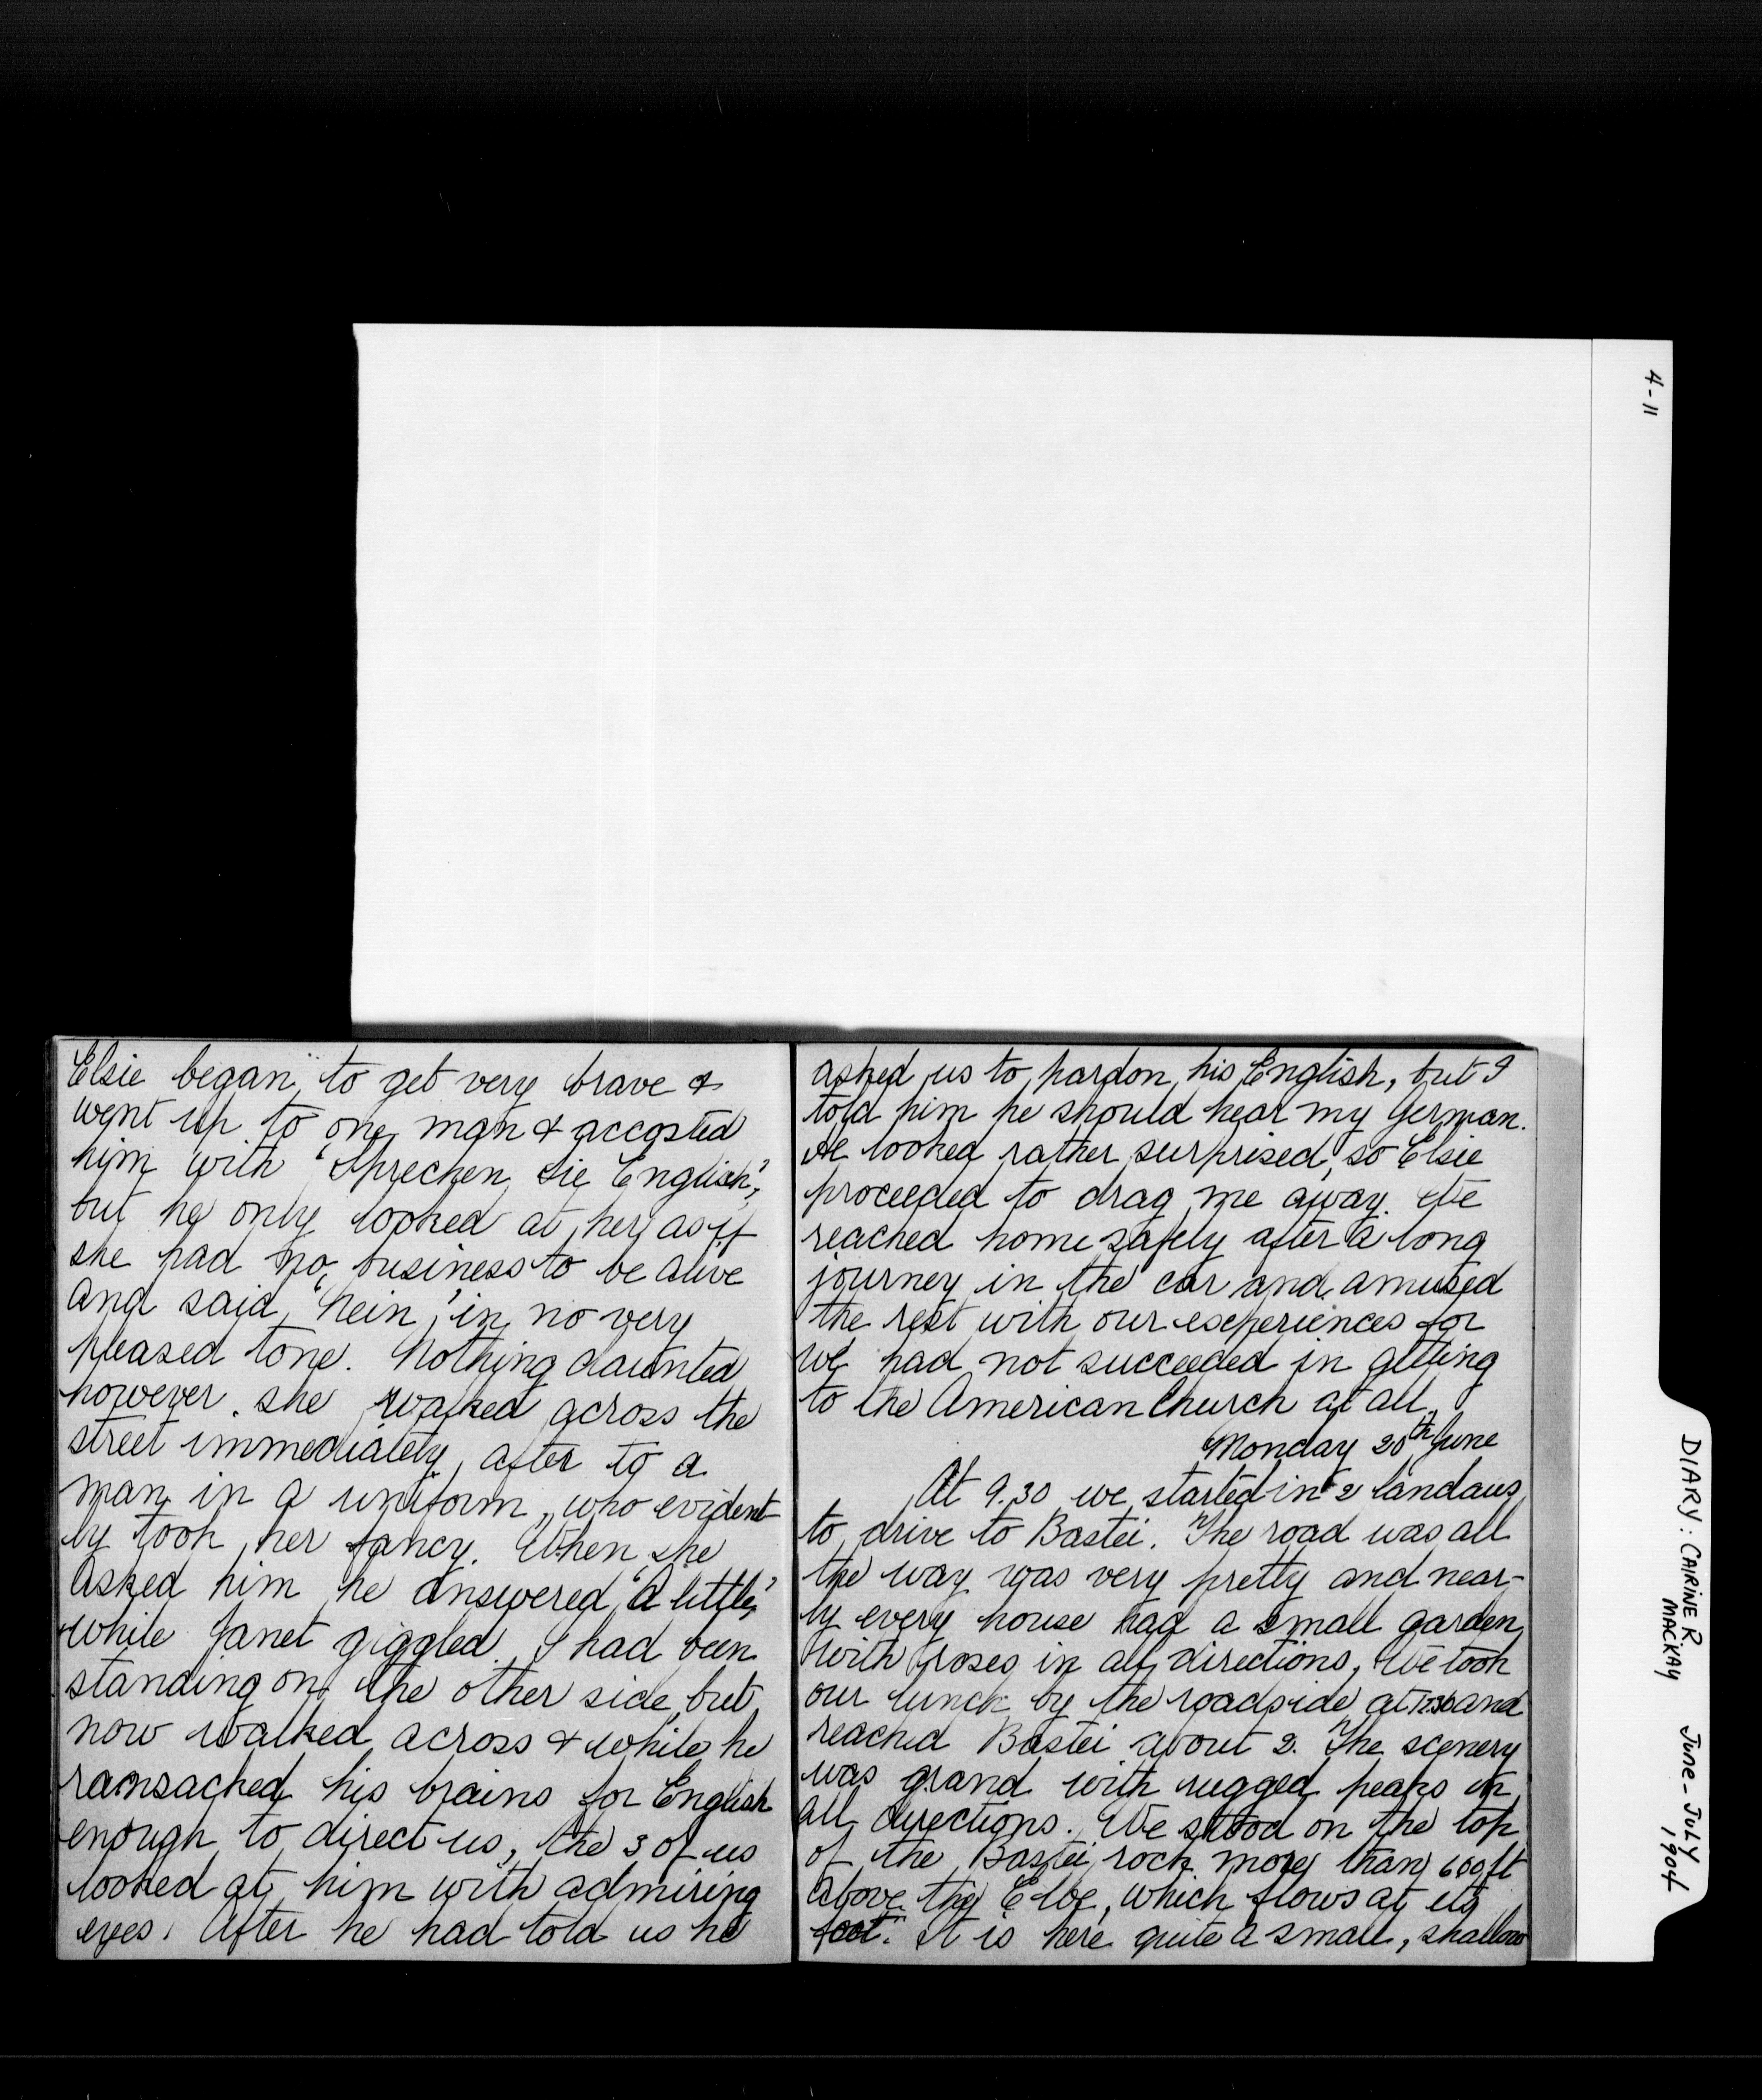 Elsie began to get very brave &
went up to one man & accosted
him with 'Sprechen Sie English',
but he only looked at her as if
she had no business to be alive
and said, 'Nein,' in no very
pleased tone. Nothing daunted
however she walked across the
street immediately after to a
man in a uniform, who evident-
ly took her fancy. When she
asked him he answered 'A little,'
while Janet giggled. I had been
standing on the other side, but
now walked across & while he
ransacked his brains for English
enough to direct us, the 3 of us
looked at him with admiring
eyes. After he had told us he
asked us to pardon his English, but I
told him he should hear my German.
He looked rather surprised, so Elsie
proceeded to drag me away. We
reached home safely after a long
journey in the car and amused
the rest with our experiences for
we had not succeeded in getting
to the American Church at all.
Monday 20th June
At 9.30 we started in 2 landaus
to drive to Bastei. The road was all
the way was very pretty and near-
ly every house had a small garden
with roses in all directions. We took
our lunch by the roadside at 12.30 and
reached Bastei about 2. The scenery
was grand with rugged peaks in
all directions. We stood on the top
of the Bastei rock more than 600 ft
above the Elbe, which flows at its
foot. It is here quite a small, shallow
4-11
DIARY: CARINE R. MACKAY
June - July 1904